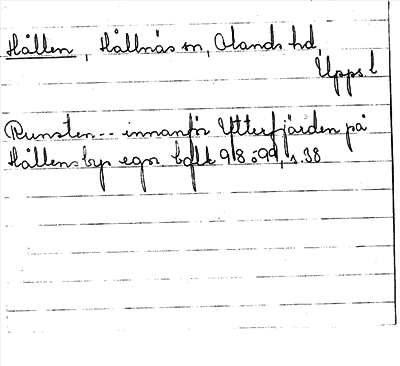 Hållen, Hållnäs sn, Olands hd,
Upps l
Runsten -- innanför Ytterfjärden på
Hållens bys egor bqlk 98:99, s. 38